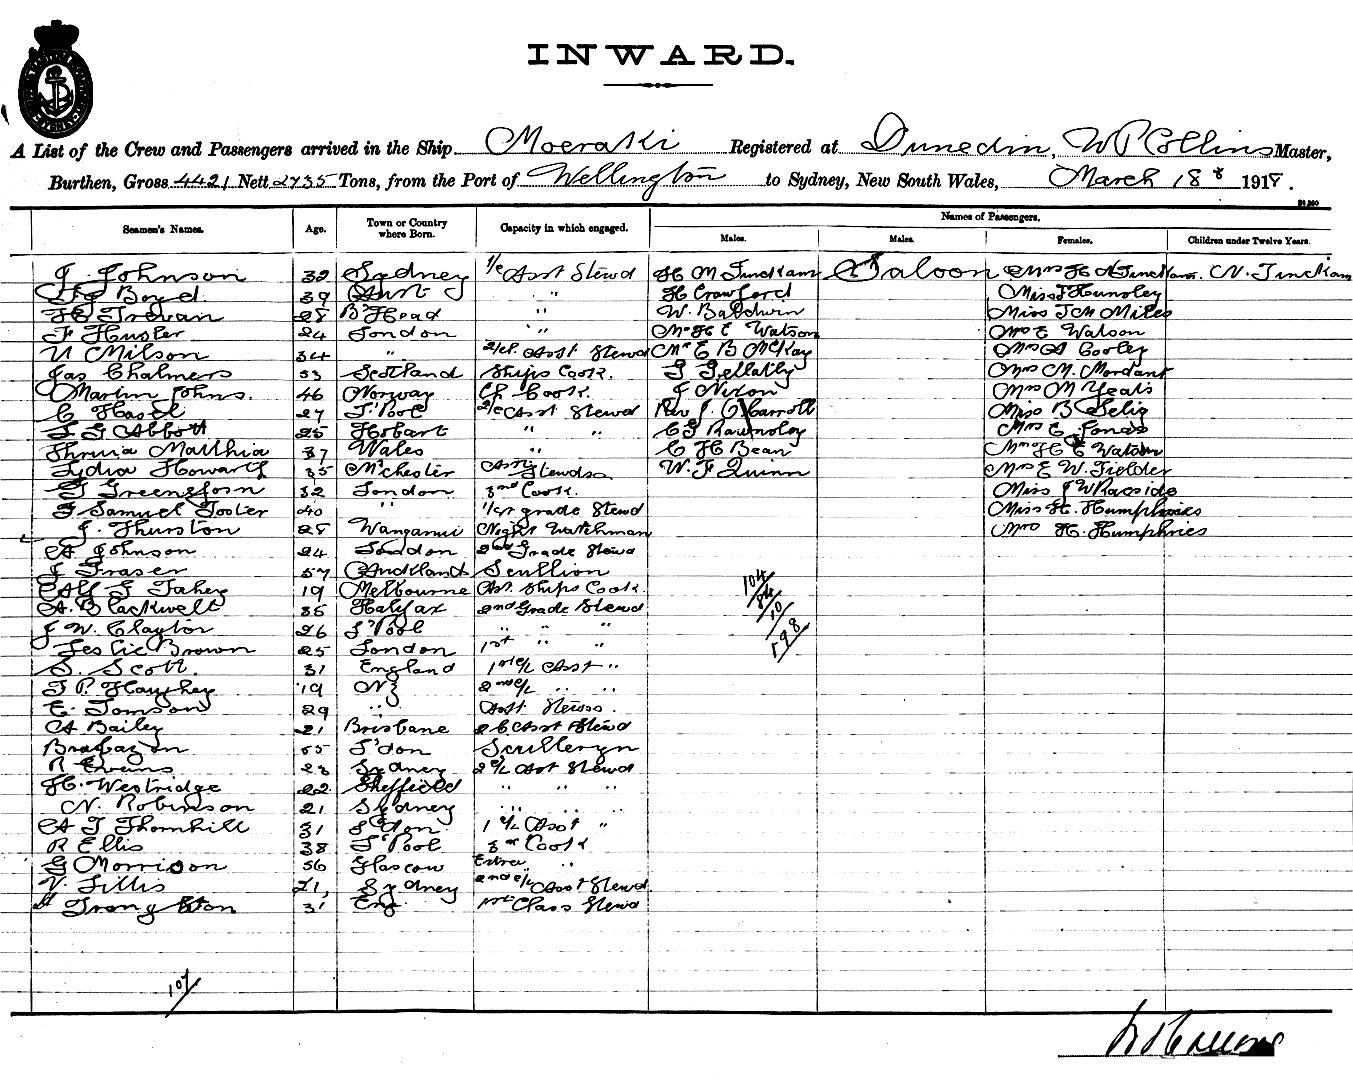 INWARD.
A List of the Crew and Passengers arrived in the Ship Moeraki Registered at Dunedin, W P Collins Master,
Burthen, Gross 4421 Nett 2735 Tons, from the Port of Wellington to Sydney, New South Wales, March 18 1918.
Names of Passengers.
Seamen's Names. Age. Town or Country where Born. Capacity in which engaged. Males. Males. Females. Children under Twelve Years.
J. Johnson 32 Sydney 1/c Asst Stewd H M Tinckham Saloon Mrs H M Tinckham. N. Tinckham
Boyd 39 Aust " H Crawford Miss Hunsley
Trevan 28 B'Head " W. Baldwin Miss J M Miles
F Husler 24 London " Mr H E Watson Mrs E Watson
N Milson 34 " 2/cl. Asst Stewd Mr E B McKay Mrs A Cooley
Jas Chalmers 53 Scotland Ships Cook. Gellatly Mrs M. Mordant
Martin Johns. 46 Norway Ch Cook. J Nixon Mrs M Yeats
C Hasel 27 L'Pool 2/c Asst Stewd Rev J. O'Carroll Miss B Selig
Abbott 25 Hobart " " C Rawnsley Mrs E Jones
Matthia 37 Wales " C H Bean Mrs H E Watson
Lydia Howarth 35 M'chester Asst Stewdss W. F Quinn Mrs E W. Fielder
32 London 3rd Cook. Miss J W
Samuel 40 " 1/st grade Stewd Miss H. Humphries
J. Thurston 28 Wanganui Night Watchman Mrs H. Humphries
A Johnson 24 London 2nd Grade Stewd
J Fraser 57 Auckland Scullion
Alf G Fahey 19 Melbourne Ast. Ships Cook. 104
A. Blackwell 36 Halyfax 2nd Grade Stewd 84
J W. Clayton 26 L'Pool " " " 10
Leslie Brown 25 London 1st " " 198
S. Scott. 31 England 1st c/l Asst "
T P. Haughey 19 NZ 2nd c/l " "
E. Tomson 29 " Asst Stewss.
A Bailey 21 Brisbane 2 C Asst Stewd
Brabazon 55 L'don Sculleryn
R Evans 23 Sydney 2 c/l Asst Stewd
H. Westridge 22 Sheffield " " "
N. Robinson 21 Sydney " " "
A T Thornhill 31 L'don 1 c/l Asst "
R Ellis 38 L'Pool 3rd Cook
G Morrison 56 Glascow Extra "
V. Lillis 21, Sydney 2nd c/l Asst Stewd
31 Eng 1st Class Stewd
107